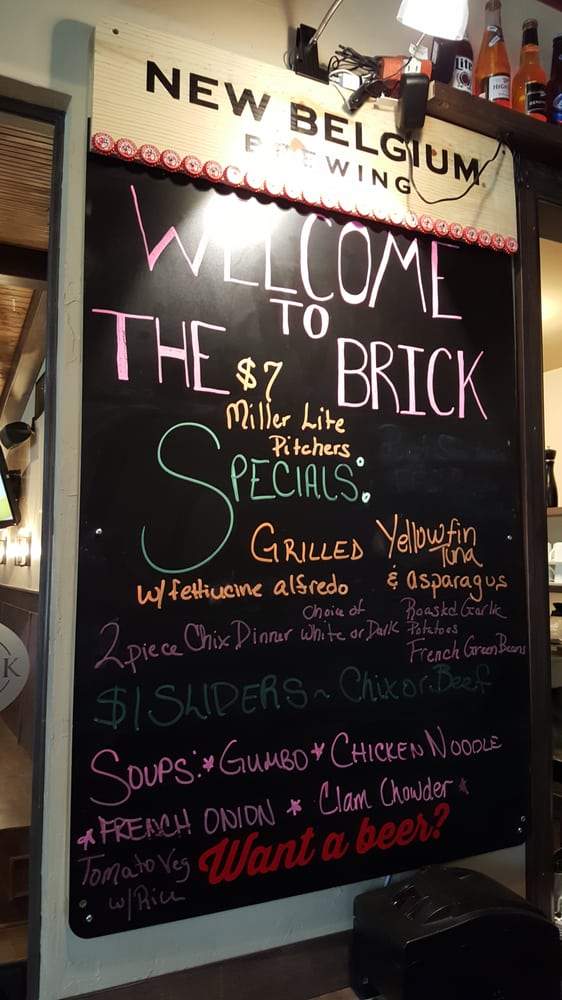 NEW BELGIUM
BREWING
WELCOME
TO
THE BRICK
$7
Miller Lite
Pitchers
SPECIALS:
GRILLED Yellowfin
Tuna
w/fettiucine alfredo & asparagus
2 piece Chix Dinner choice of White or Dark
Roasted Garlic
Potatoes
French Green Beans
$1 SLIDERS ~ Chix or Beef
SOUPS: * GUMBO * CHICKEN NOODLE
* FRENCH ONION * Clam Chowder *
Tomato Veg
w/Rice
Want a beer?
K